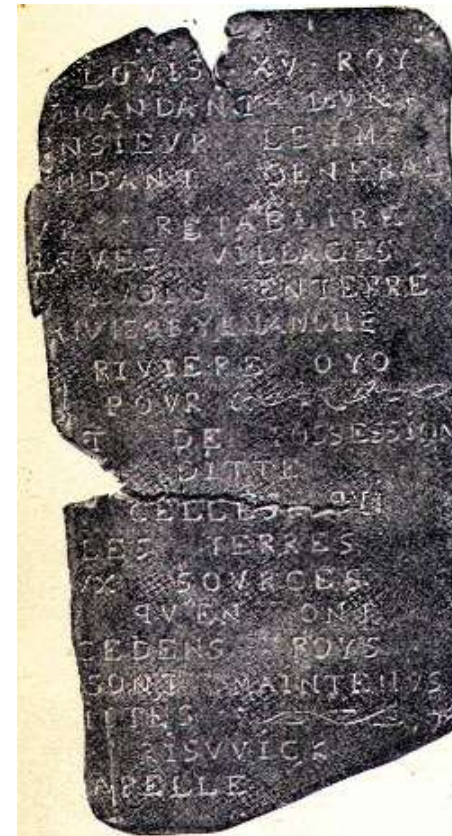 LOVIS XV ROY
MANDANT DVN
NSIEVR LE M
NDANT GENERAL
VR RETABLIRE
LQVES VILLAGES
AVONS ENTERRE
RIVIERE YENANGUE
RIVIERE OYO
POVR
T DE POSSESSION
DITTE
CELLES QVI
LES TERRES
VX SOVRCES
QVEN ONT
CEDENS ROYS
SONT MAINTENVS
ITTES
RISVVICK
APELLE